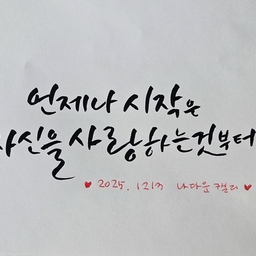 언제나 시작은
자신을 사랑하는것부터
♥ 2025. 나다운 캘리 ♥